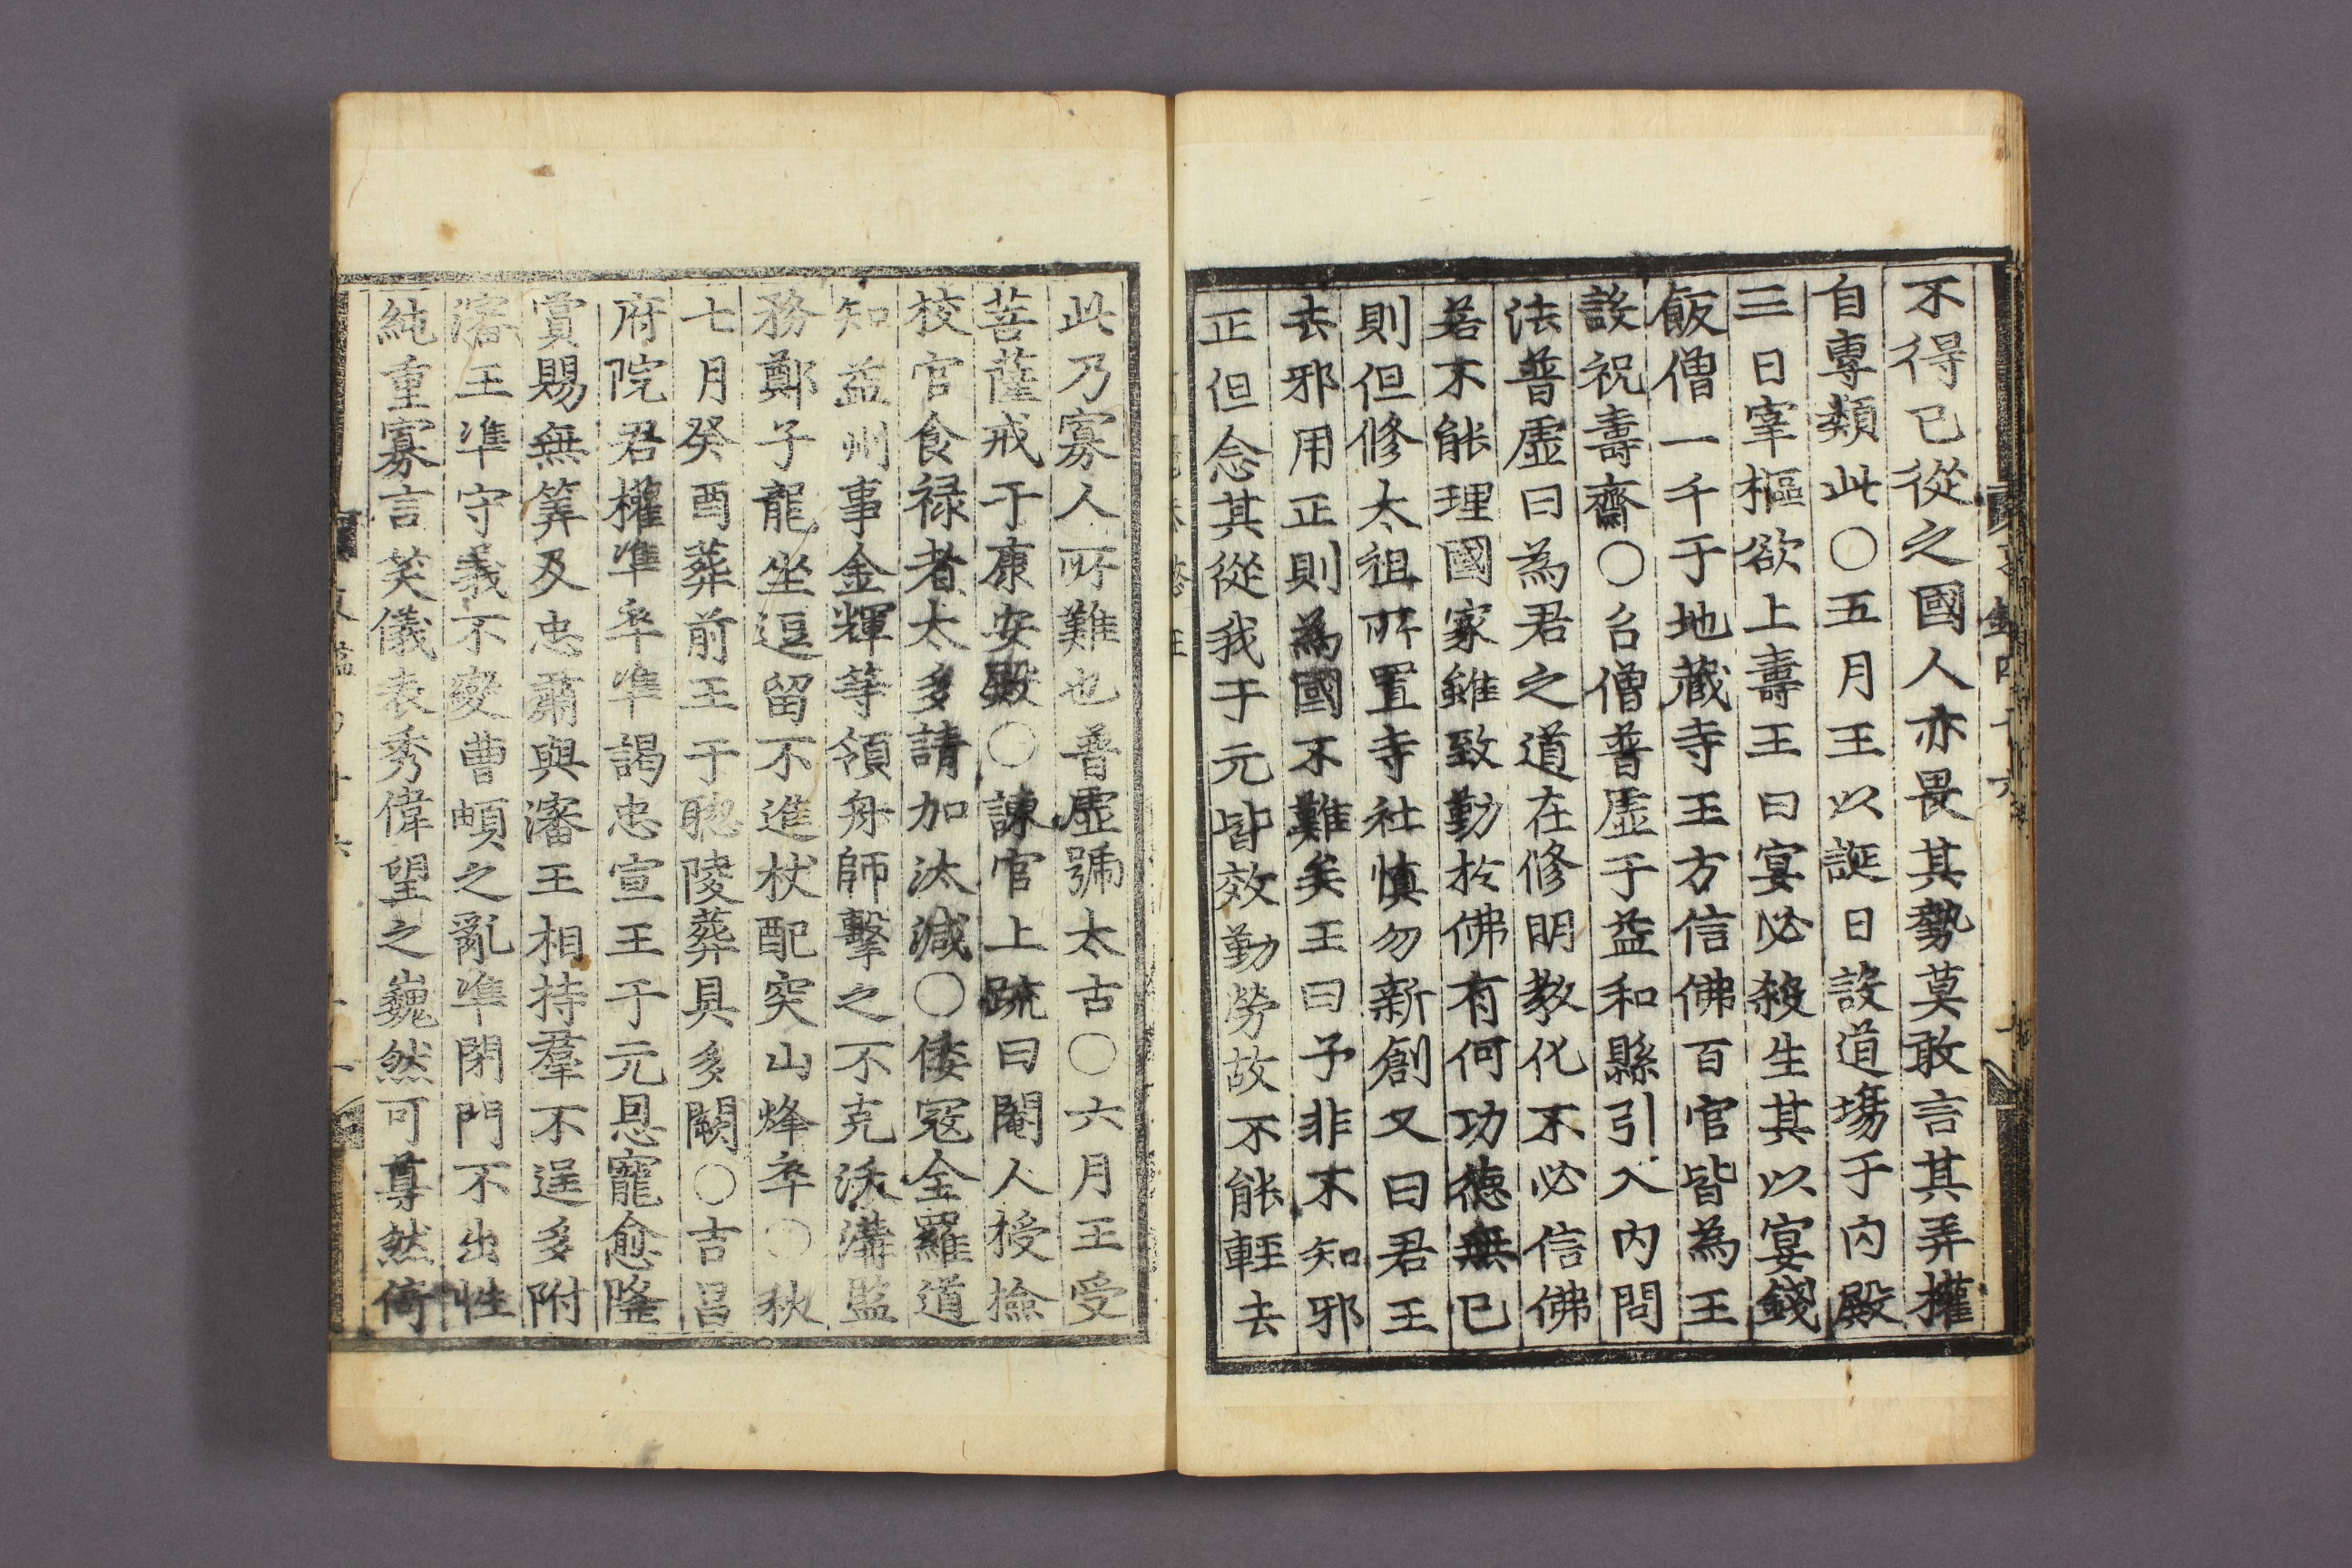 不得已從之國人亦畏其勢莫敢言其弄權
自專類此〇五月王以誕日設道場于內殿
三日宰樞欲上壽王曰宴必殺生其以宴錢
飯僧一千于地藏寺王方信佛百官皆為王
設祝壽齋〇召僧普虛于益和縣引入內問
法普虛曰為君之道在修明教化不必信佛
若不能理國家雖致勤於佛有何功德無已
則但修太祖所置寺社慎勿新創又曰君王
去邪用正則為國不難矣王曰予非不知邪
正但念其從我于元皆效勤勞故不能輕去
此乃寡人所難也普虛號太古〇六月王受
菩薩戒于康安殿〇諫官上疏曰閹人授撿
校官食祿者太多請加汰減〇倭寇全羅道
知益州事金輝等領舟師擊之不克沃溝監
務鄭子龍坐逗留不進杖配突山烽卒〇秋
七月癸酉葬前王于聰陵葬具多闕〇吉昌
府院君權準卒準謁忠宣王于元恩寵愈隆
賞賜無筭及忠肅與瀋王相持羣不逞多附
瀋王準守義不變曹頔之亂準閉門不出性
純重寡言笑儀表秀偉望之巍然可尊然倚